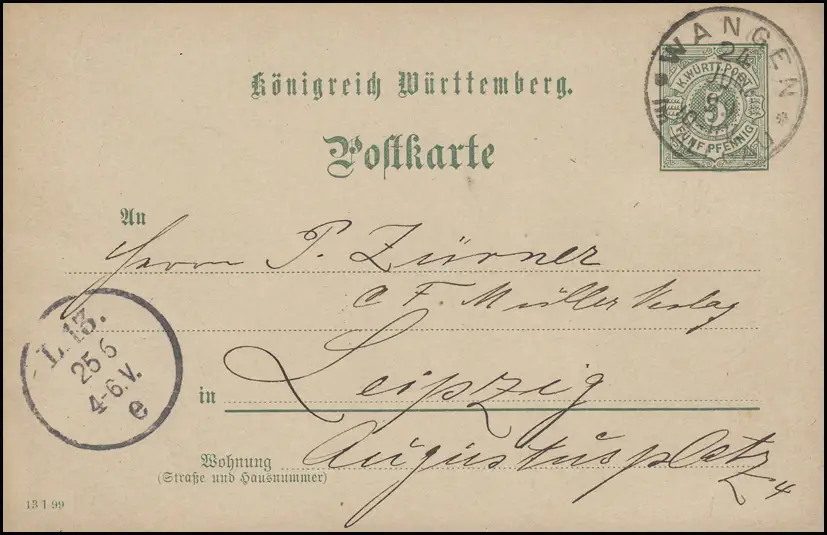 WANGEN
24 JUN
im
K.WÜRTT.POST
5
FÜNF PFENNIG
Königreich Württemberg.
Postkarte
An
Herrn P. Zürner
C F. Müller Verlag
L 13.
25 6
4-6.V.
e
in Leipzig
Wohnung Augustusplatz 4
(Straße und Hausnummer)
13 1 99